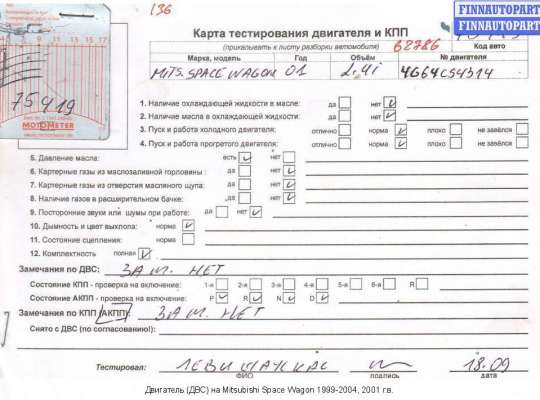 136
FINNAUTOPART
FINNAUTOPART
Карта тестирования двигателя и КПП
(прикалывать к листу разборки автомобиля)
62786
Код авто
Марка, модель Год Объём № двигателя
MITS. SPACE WAGON 01 2,4i 4G64CS4314
75419
MOTOMETER
1. Наличие охлаждающей жидкости в масле: да нет
2. Наличие масла в охлаждающей жидкости: да нет
3. Пуск и работа холодного двигателя: отлично норма плохо не завёлся
4. Пуск и работа прогретого двигателя: отлично норма плохо не завёлся
5. Давление масла: есть нет
6. Картерные газы из маслозаливной горловины: да нет
7. Картерные газы из отверстия масляного щупа: да нет
8. Наличие газов в расширительном бачке: да нет
9. Посторонние звуки или шумы при работе: да нет
10. Дымность и цвет выхлопа: норма
11. Состояние сцепления: норма
12. Комплектность полная
Замечания по ДВС: ЗАМ. НЕТ
Состояние КПП - проверка на включение: 1-я 2-я 3-я 4-я 5-я 6-я R
Состояние АКПП - проверка на включение: P R N D
Замечания по КПП (АКПП): ЗАМ. НЕТ
Снято с ДВС (по согласованию!):
Тестировал: 18.09
ФИО подпись дата
Двигатель (ДВС) на Mitsubishi Space Wagon 1999-2004, 2001 г.в.